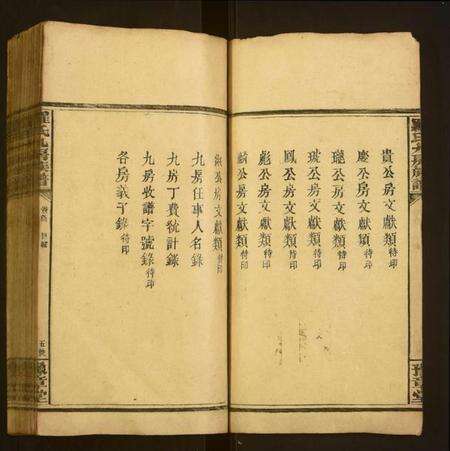 貴公房文獻類待印
慶公房文獻類待印
璁公房文獻類待印
琥公房文獻類待印
鳳公房文獻類待印
彪公房文獻類待印
公房文獻類待印
公房文獻類待印
九房任事人名錄
九房丁費統計錄
九房收譜字號錄待印
各房義子錄待印
羅氏九房族譜
豫章堂